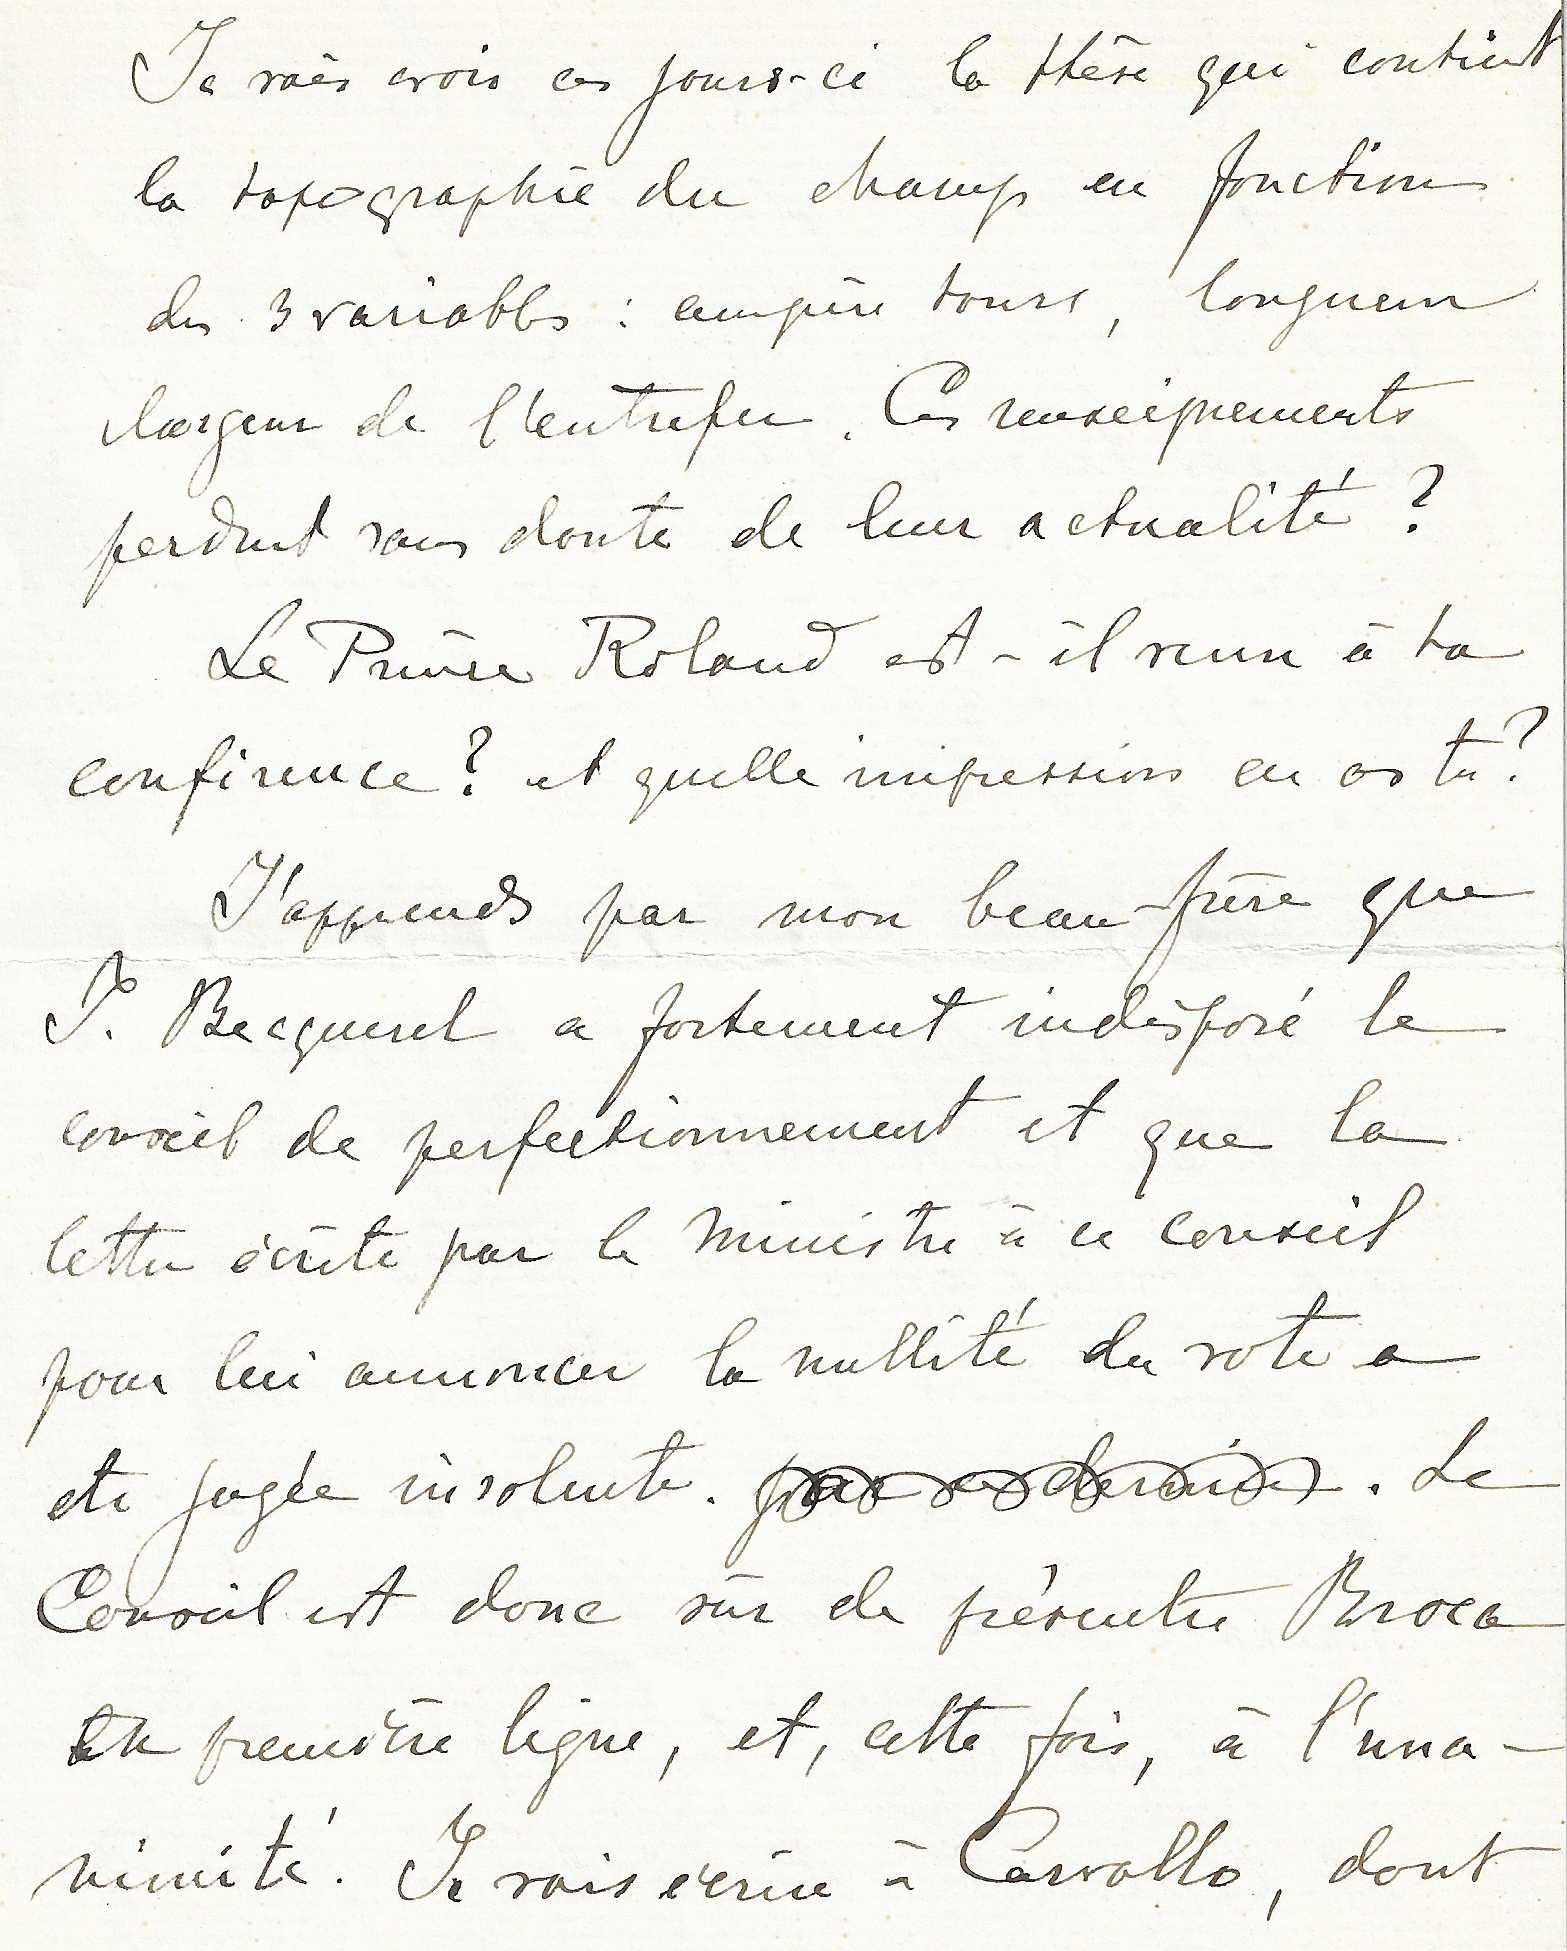 Je vais avoir ces jours-ci la thèse qui contient
la topographie du champ en fonction
des 3 variables : ampère tours, longueur
largeur de l'entrefer. Ces renseignements
perdent sans doute de leur actualité ?
Le Prince Roland est-il venu à ta
conférence ? et quelle impression en as tu ?
J'apprends par mon beau-frère que
J. Becquerel a fortement indisposé le
conseil de perfectionnement et que la
lettre écrite par le Ministre à ce conseil
pour lui annoncer la nullité du vote a
été jugée insolente. par ce dernier. Le
Conseil est donc sûr de présenter Broca
en première ligne, et, cette fois, à l'una-
nimité. Je vais écrire à Carvallo, dont